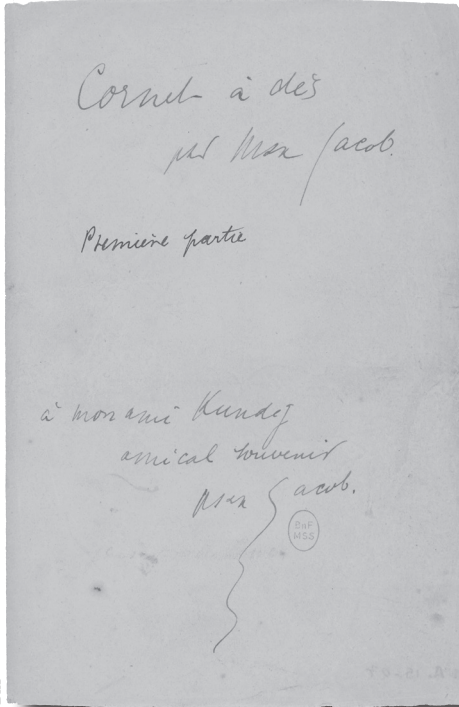 Cornet à dés
par Max Jacob.
Première partie
à mon ami Kundig
amical souvenir
Max Jacob.
BnF
MSS